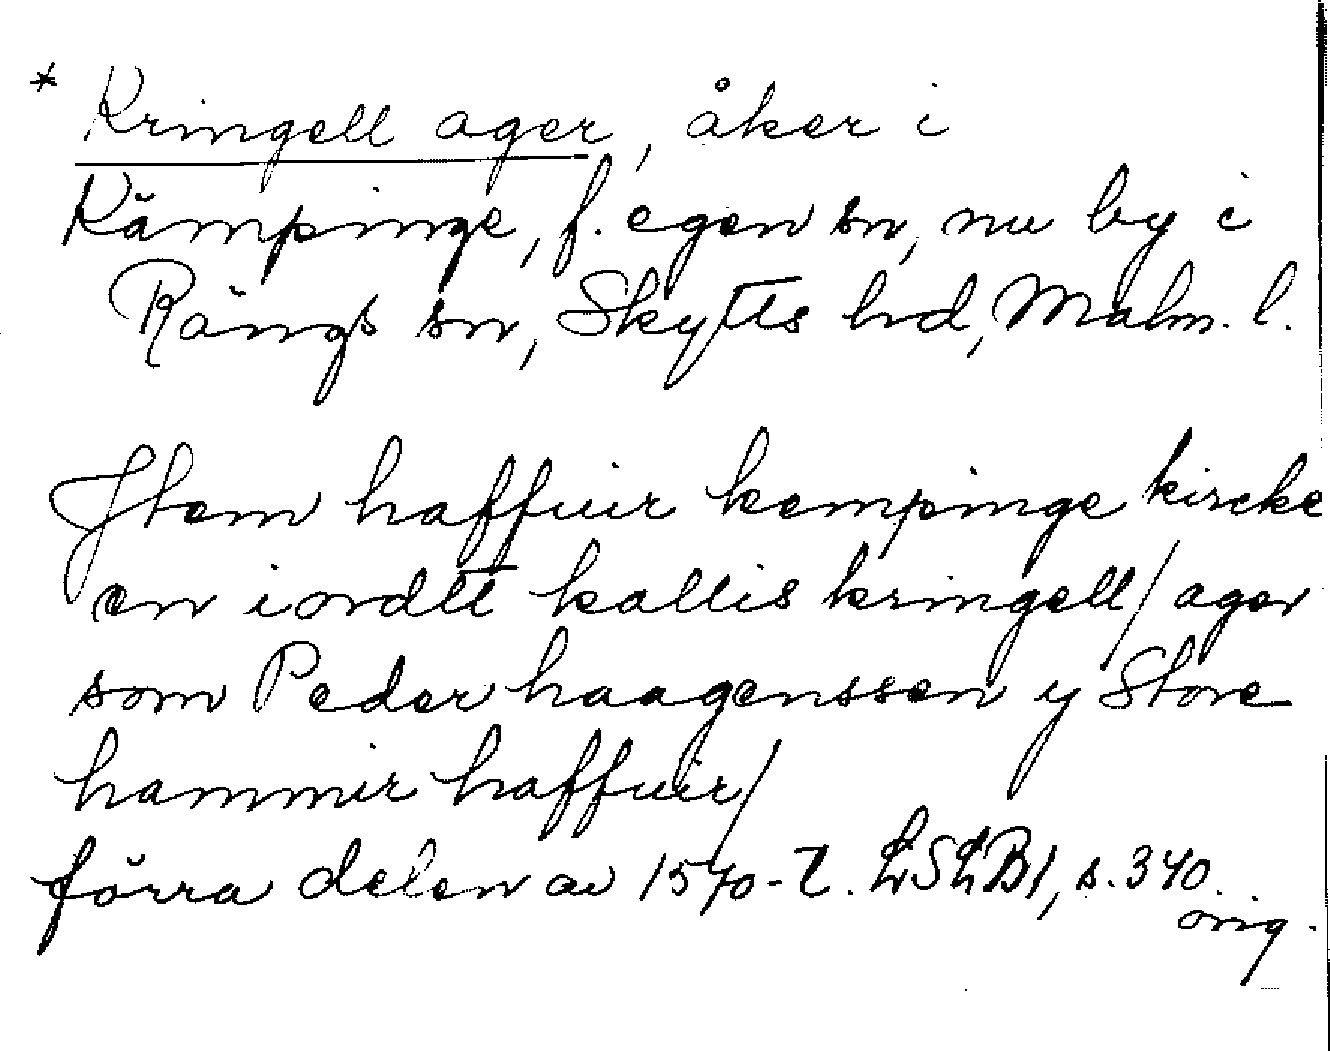 * Kringell ager, åker i
Kämpinge, f. egen sn, nu by i
Rängs sn, Skytts hd, Malm. l.
Jtem haffuir kempinge kircke
en iordtt kallis kringell / ager
som Peder haagenssen y Store
hammir haffuir /
förra delen av 1570-t. LSLB1, s. 340.
orig.